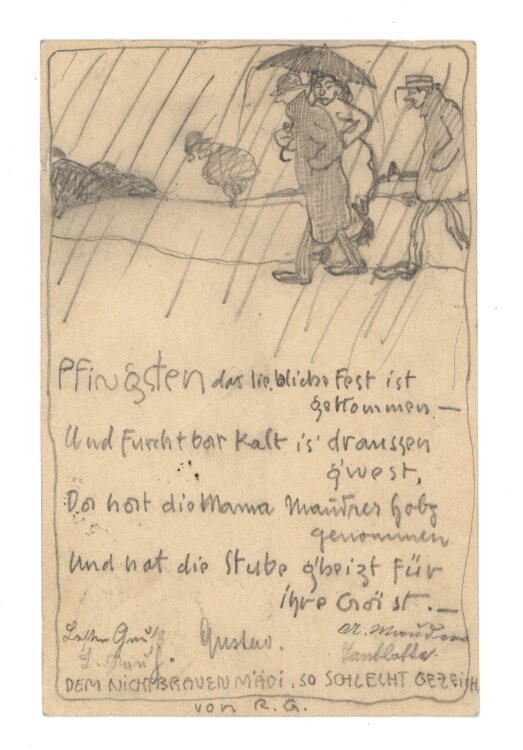 Pfingsten das liebliche Fest ist
gekommen —
Und furchtbar kalt is' draussen
g'west,
Do hot die Mama Holz
genommen
Und hat die Stube g'heizt für
ihre Gäst. —
Gustav.
DEM NICHTBRAVEN MÄDI, SO SCHLECHT GEZEICH.
von R.G.